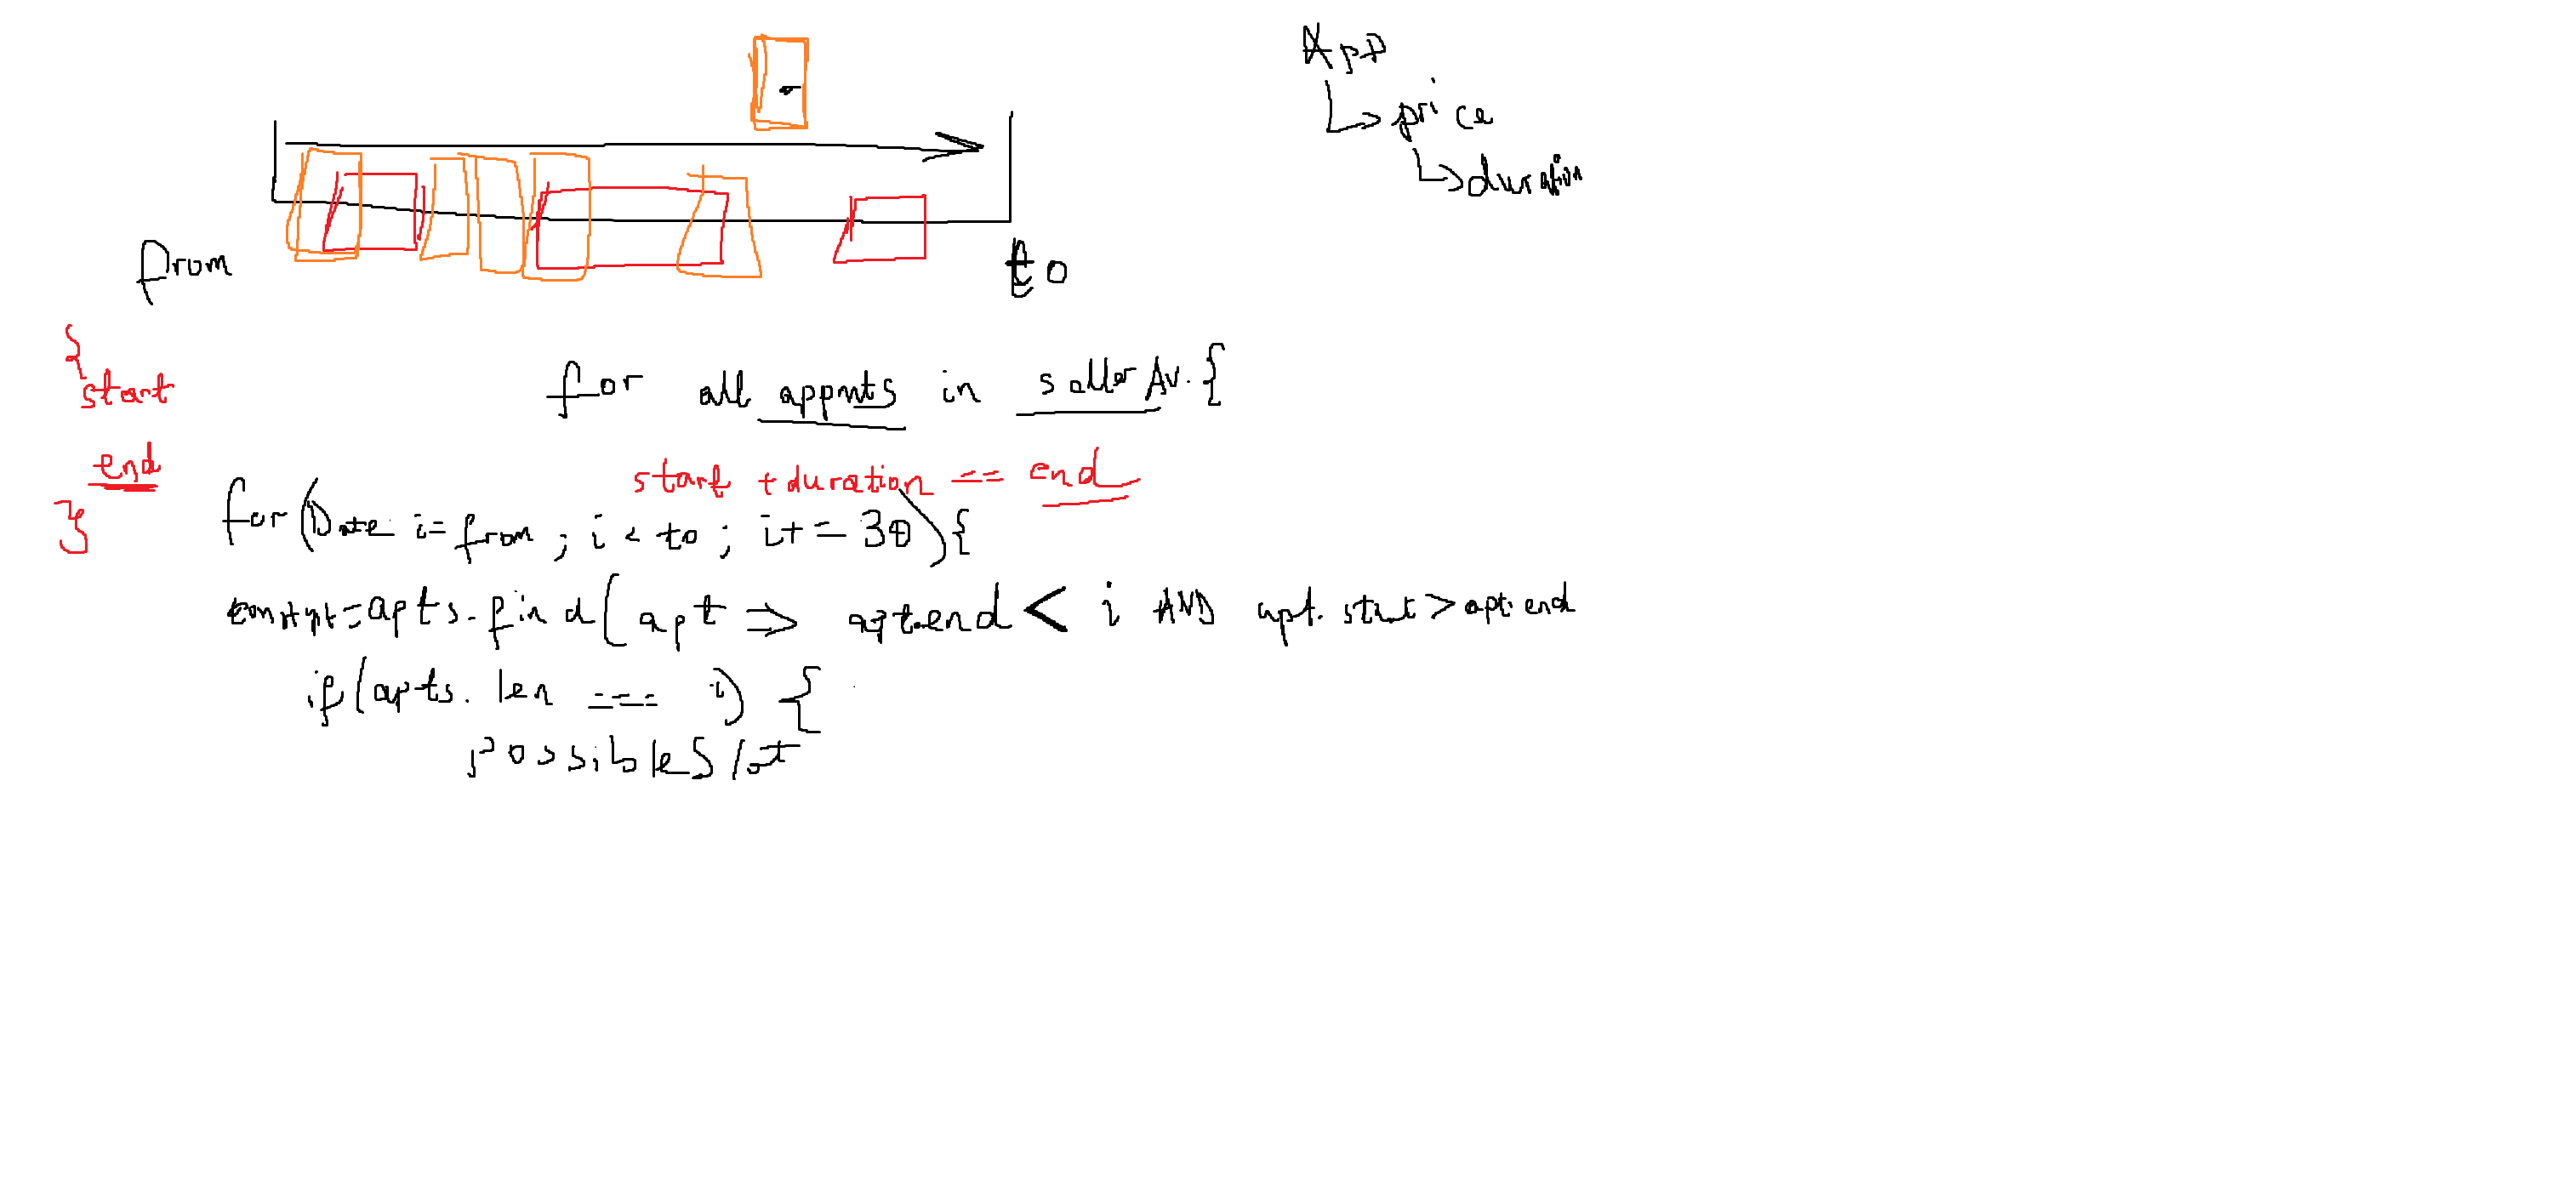 App
price
duration
from
to
{
start
end
}
for all appnts in sellerAv. {
start + duration == end
for (Date i = from ; i < to ; i+ = 30) {
apts.find( apt => apt.end < i AND apt. start > apt. end
if (apts. len === i) {
possibleSlot